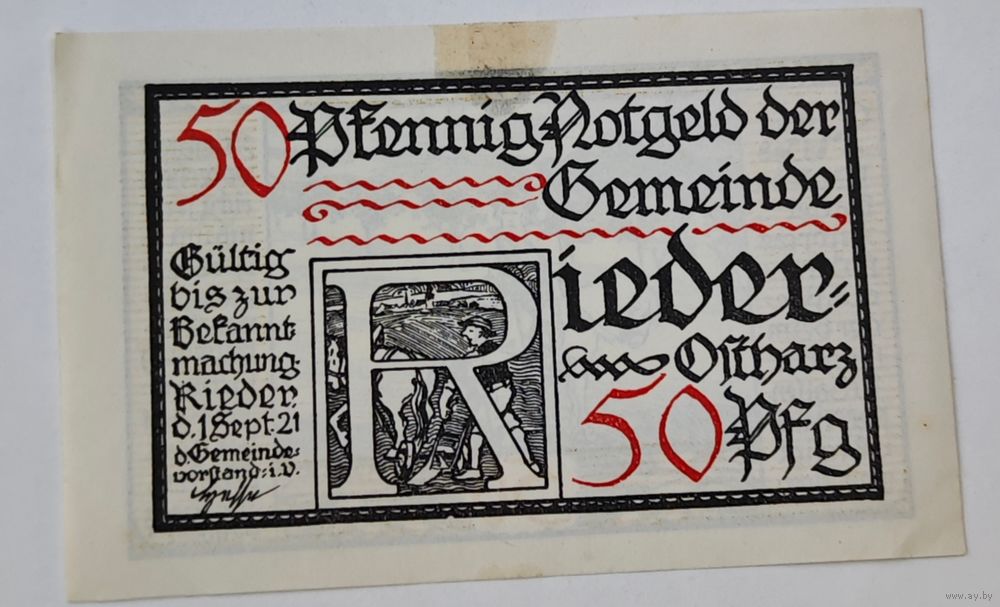 50 Pfennig Notgeld der
Gemeinde
Rieder-
Ostharz
50 Pfg
Gültig
bis zur
Bekannt-
machung.
Rieder.
d. 1 Sept. 21
d. Gemeinde-
vorstand: i. V.
www.ay.by